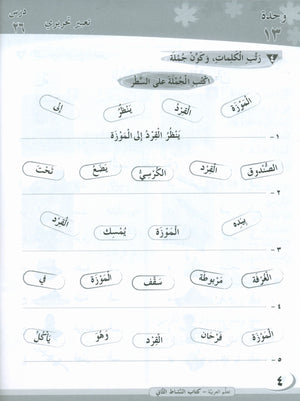 وحدة
١٣
تعبير تحريري
درس
٢٦
رَتِّب الكَلِماتِ، وكَوِّنْ جُمْلَة
اُكْتُبِ الجُمْلَةَ عَلى السَّطْر
المَوْزَة القِرْدُ يَنْظُرُ إلى
١ – يَنْظُرُ القِرْدُ إلى المَوْزَة
الصُّنْدوق القِرْد الكُرْسِيَّ يَضَعُ تَحْتَ
٢ –
بِيَدِه المَوْزَة يُمْسِك القِرْد
٣ –
الغُرْفَة مَرْبوطَة سَقْف المَوْزَة في
٤ –
المَوْزَة فَرْحان القِرْد وَهُوَ يَأْكُلُ
٥ –
٤
تعلم العربية – كتاب النشاط الثاني